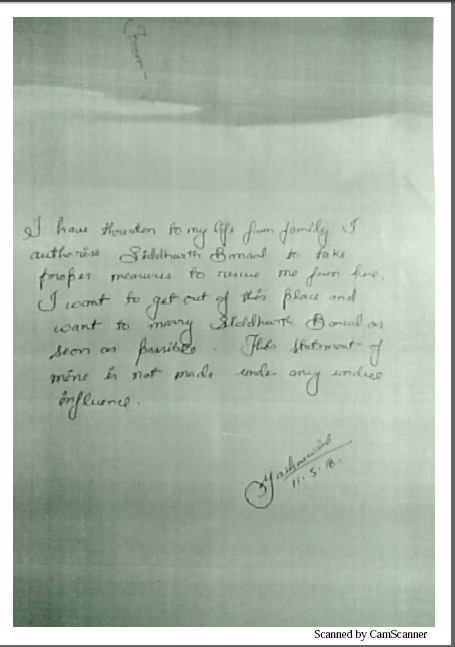 I have threaten to my life from family I
authorise Siddharth Bansal to take
proper measures to rescue me from here.
I want to get out of this place and
want to marry Siddharth Bansal as
soon as possible. This statement of
mine is not made under any undue
influence.
Yashaswini
11.5.18.
Scanned by CamScanner